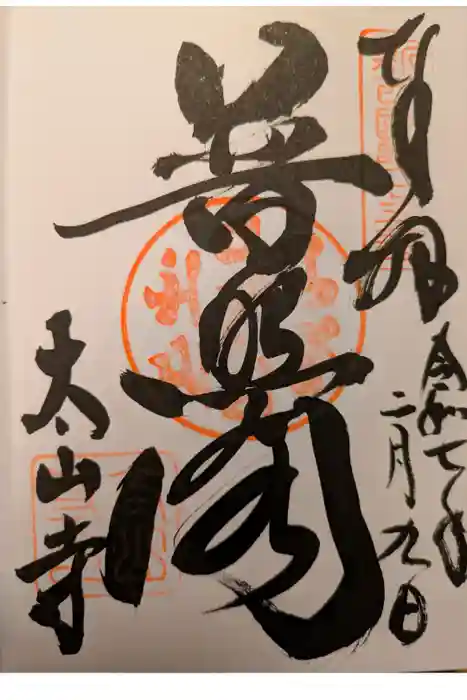 奉拝
令和七年
二月九日
普照閣
太山寺